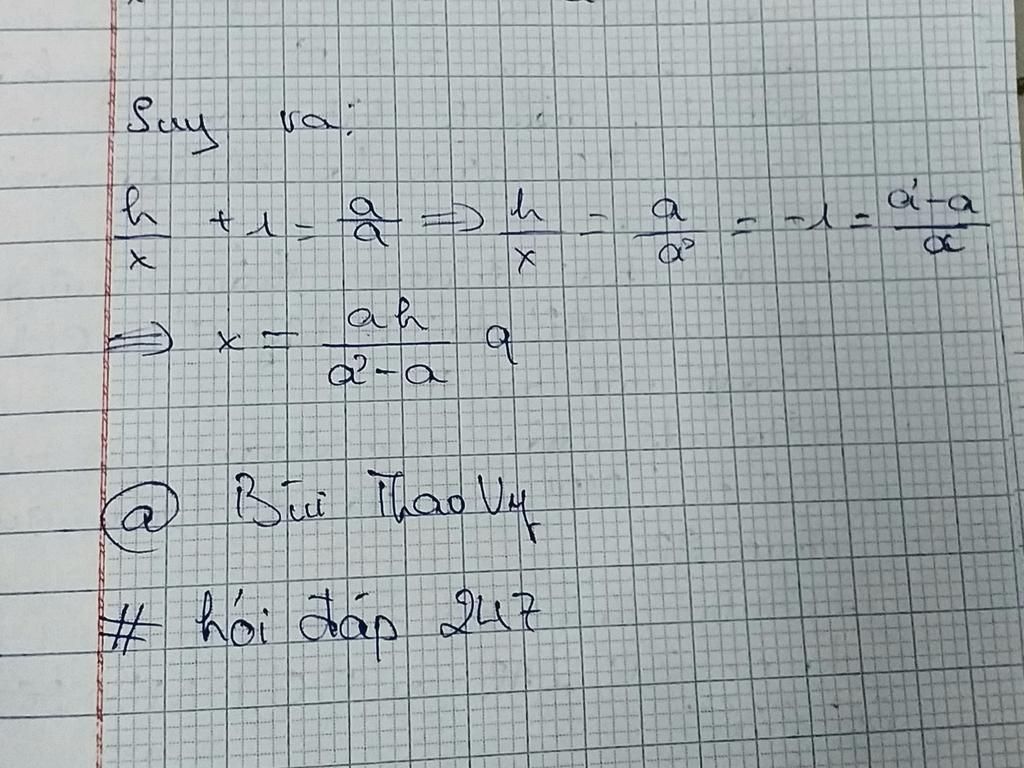 Suy ra:
h/x + 1 = a/a => h/x = a/a² = -1 = a'-a/a
=> x = ah/a²-a a
@ Bùi Thao Vy
# hỏi đáp 247